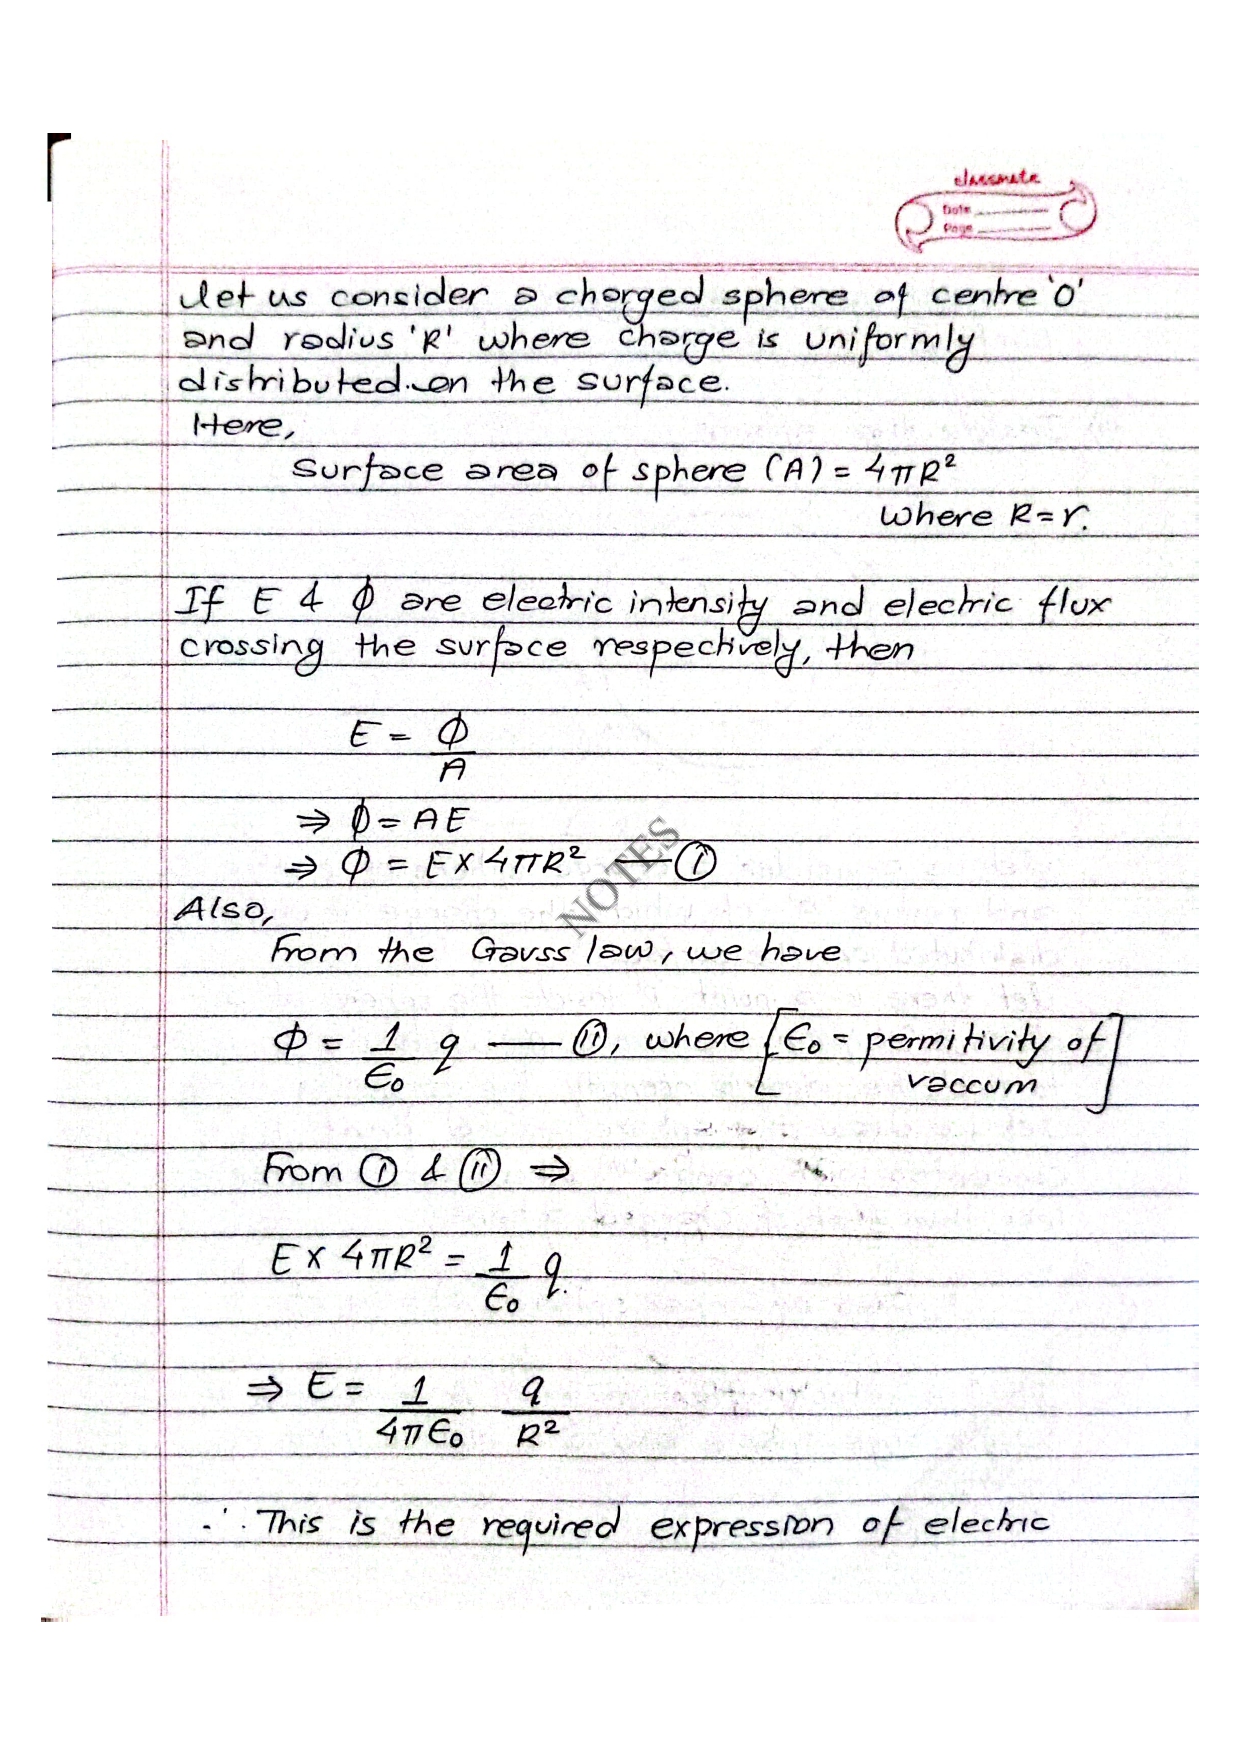 classmate
Date
Page
Let us consider a charged sphere of centre 'O'
and radius 'R' where charge is uniformly
distributed on the surface.
Here,
Surface area of sphere (A) = 4πR²
where R=r.
If E & ϕ are electric intensity and electric flux
crossing the surface respectively, then
E = ϕ/A
⇒ ϕ = AE
⇒ ϕ = E × 4πR² — (i)
NOTES
Also,
From the Gauss law, we have
ϕ = 1/ϵ₀ q — (ii), where [ϵ₀ = permitivity of
vaccum]
From (i) & (ii) ⇒
E × 4πR² = 1/ϵ₀ q.
⇒ E = 1/4πϵ₀ q/R²
∴ This is the required expression of electric